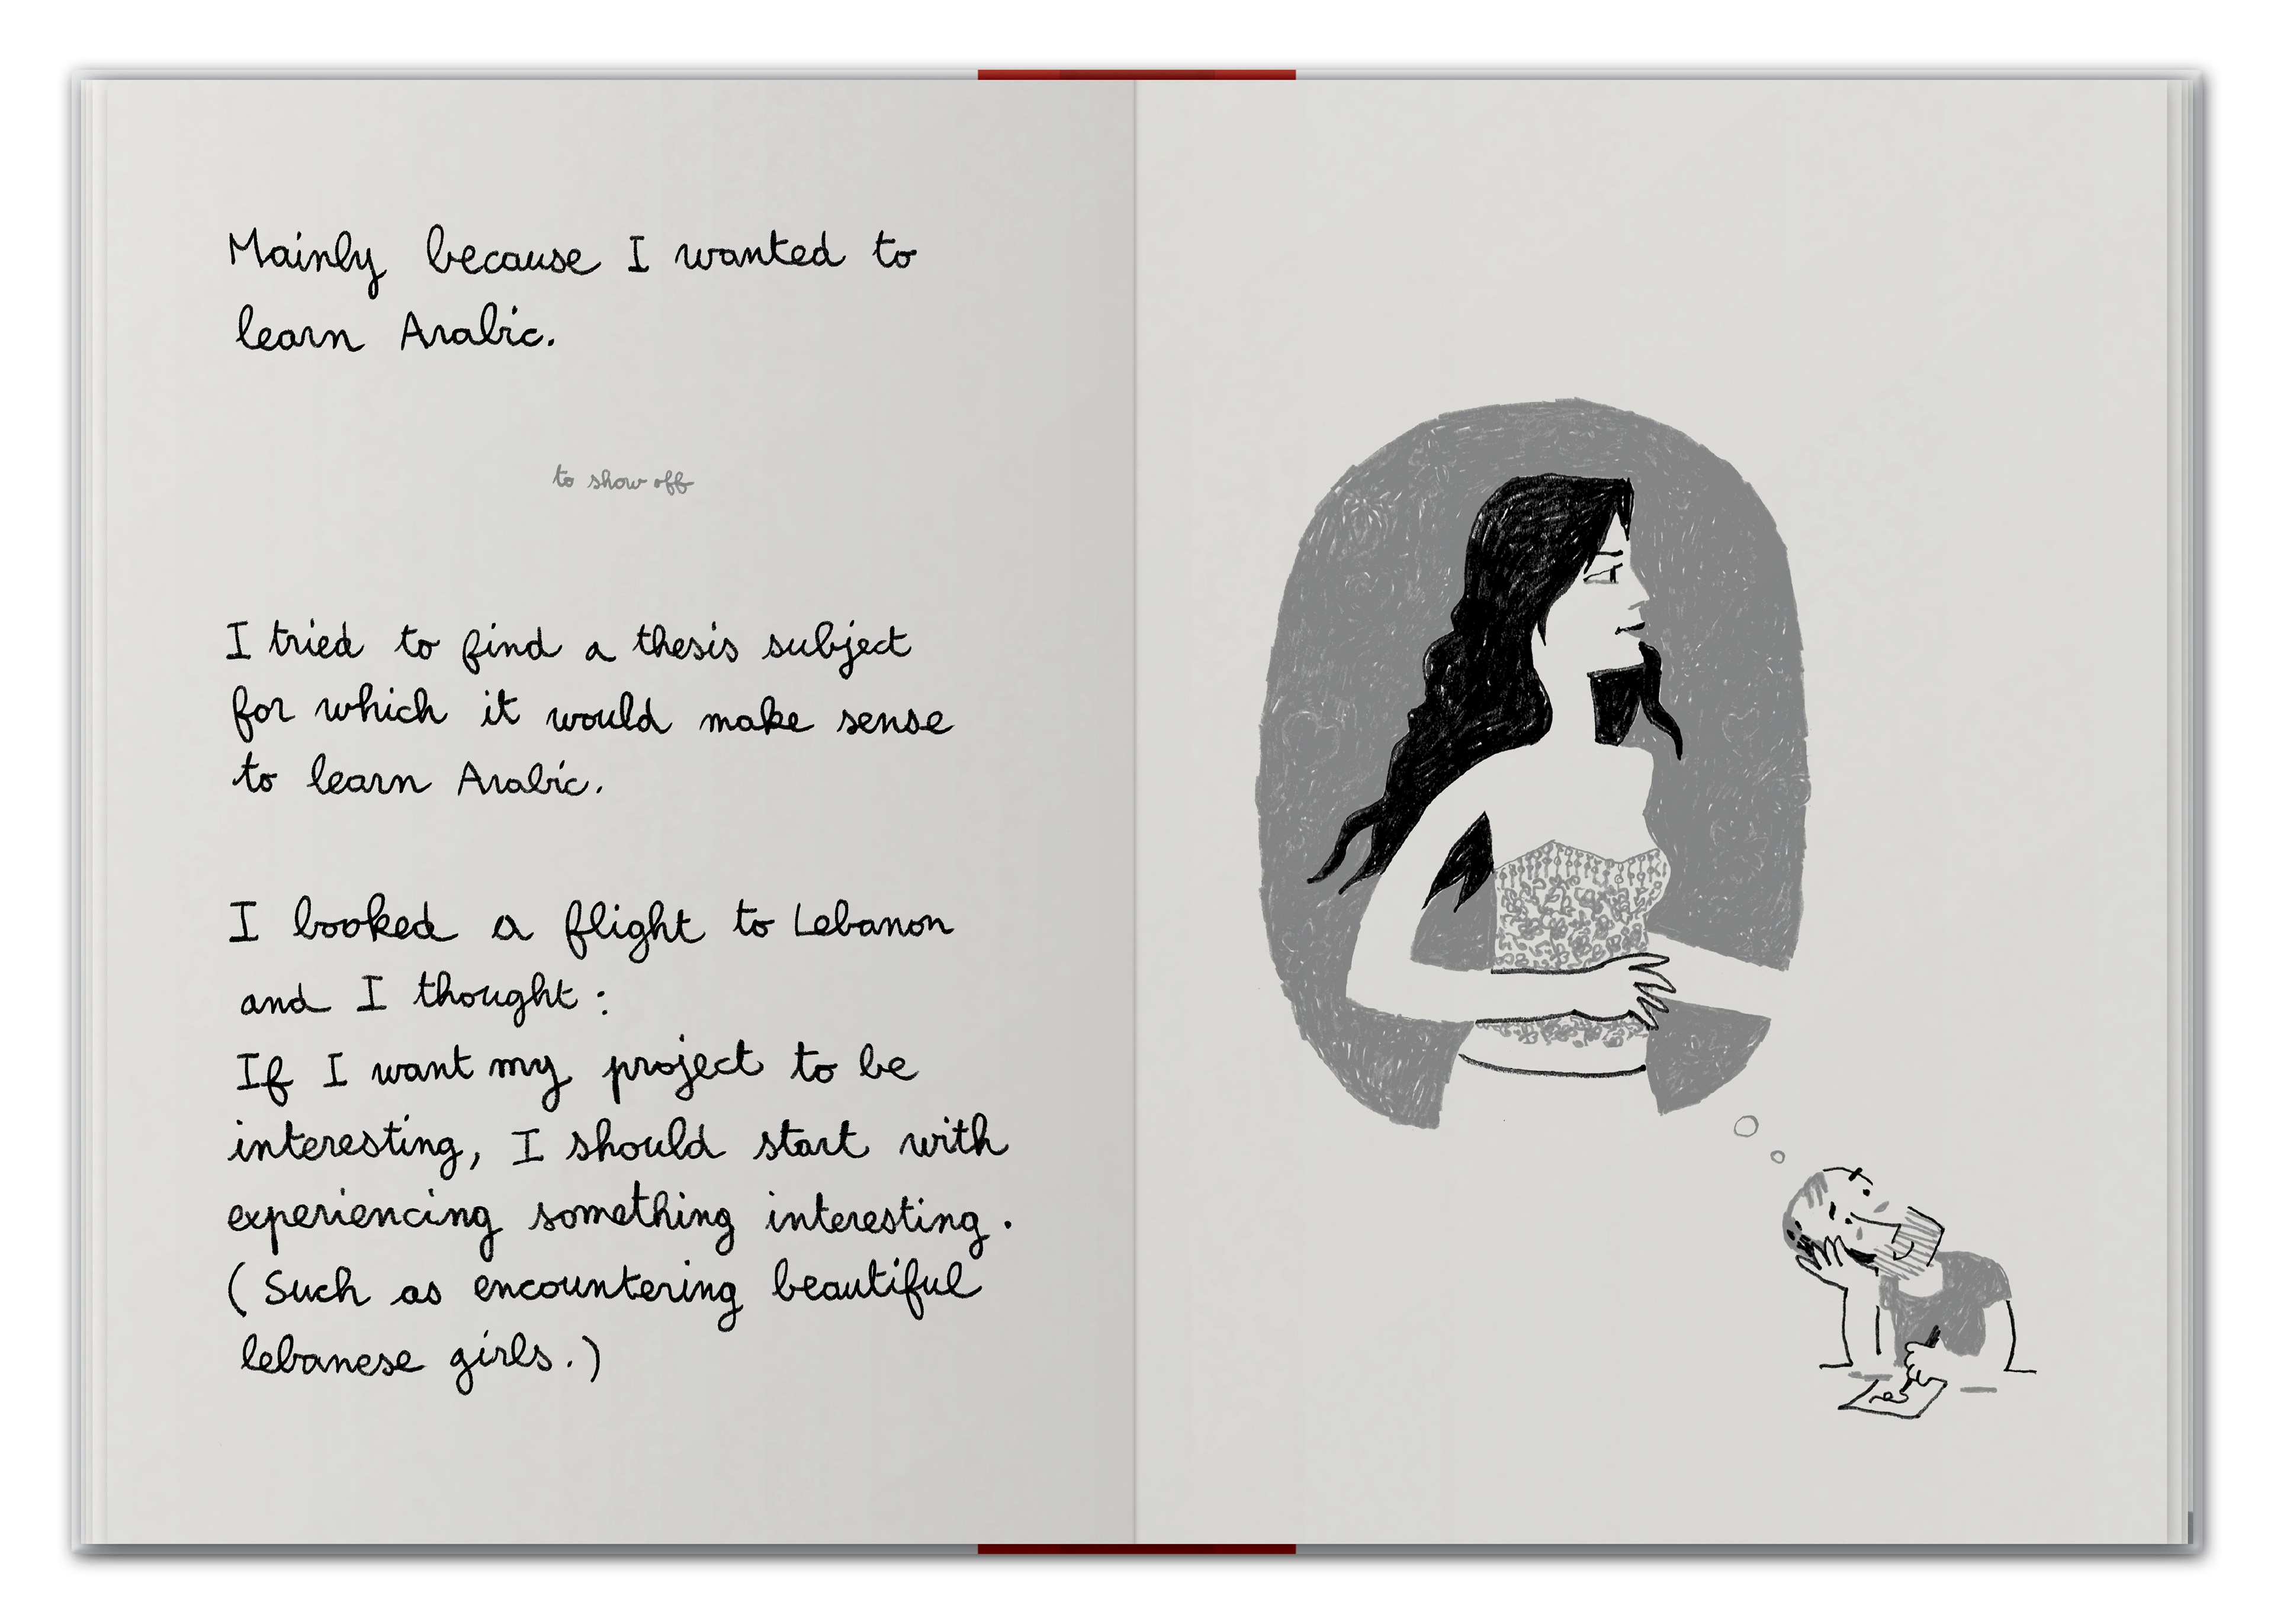 Mainly because I wanted to
learn Arabic.
to show off
I tried to find a thesis subject
for which it would make sense
to learn Arabic.
I booked a flight to Lebanon
and I thought :
If I want my project to be
interesting, I should start with
experiencing something interesting.
(Such as encountering beautiful
lebanese girls.)